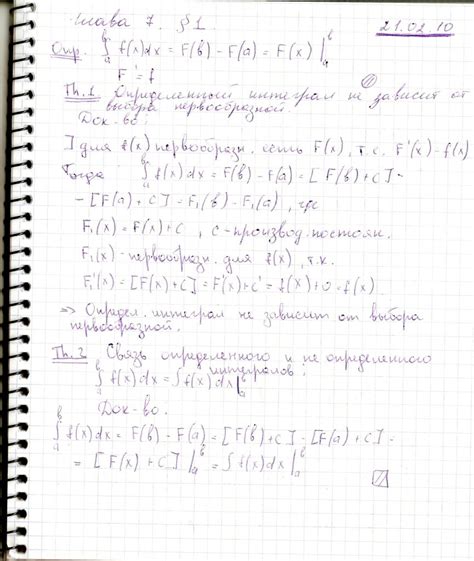 Глава 7. §1.
21.02.10
Опр. ∫ₐᵇ f(x)dx = F(b) - F(a) = F(x) |ₐᵇ
F' = f
Th.1 Определенный интеграл не зависит от
выбора первообразной.
Док-во:
] для f(x) первообразн. есть F(x), т.е. F'(x)-f(x)
Тогда ∫ₐᵇ f(x)dx = F(b) - F(a) = [F(b)+C] -
- [F(a) + C] = F₁(b) - F₁(a), где
F₁(x) = F(x)+C, c-производ. постоян.
F₁(x) - первообразн. для f(x), т.к.
F₁'(x) = [F(x)+C]' = F'(x)+c' = f(x)+0 = f(x).
=> Определ. интеграл не зависит от выбора
первообразной.
Th.2 Связь определенного и не определенного
интегралов:
∫ₐᵇ f(x)dx = ∫f(x)dx|ₐᵇ
Док-во.
∫ₐᵇ f(x)dx = F(b) - F(a) = [F(b)+C] - [F(a)+C] =
= [F(x) + C] |ₐᵇ = ∫f(x)dx |ₐᵇ